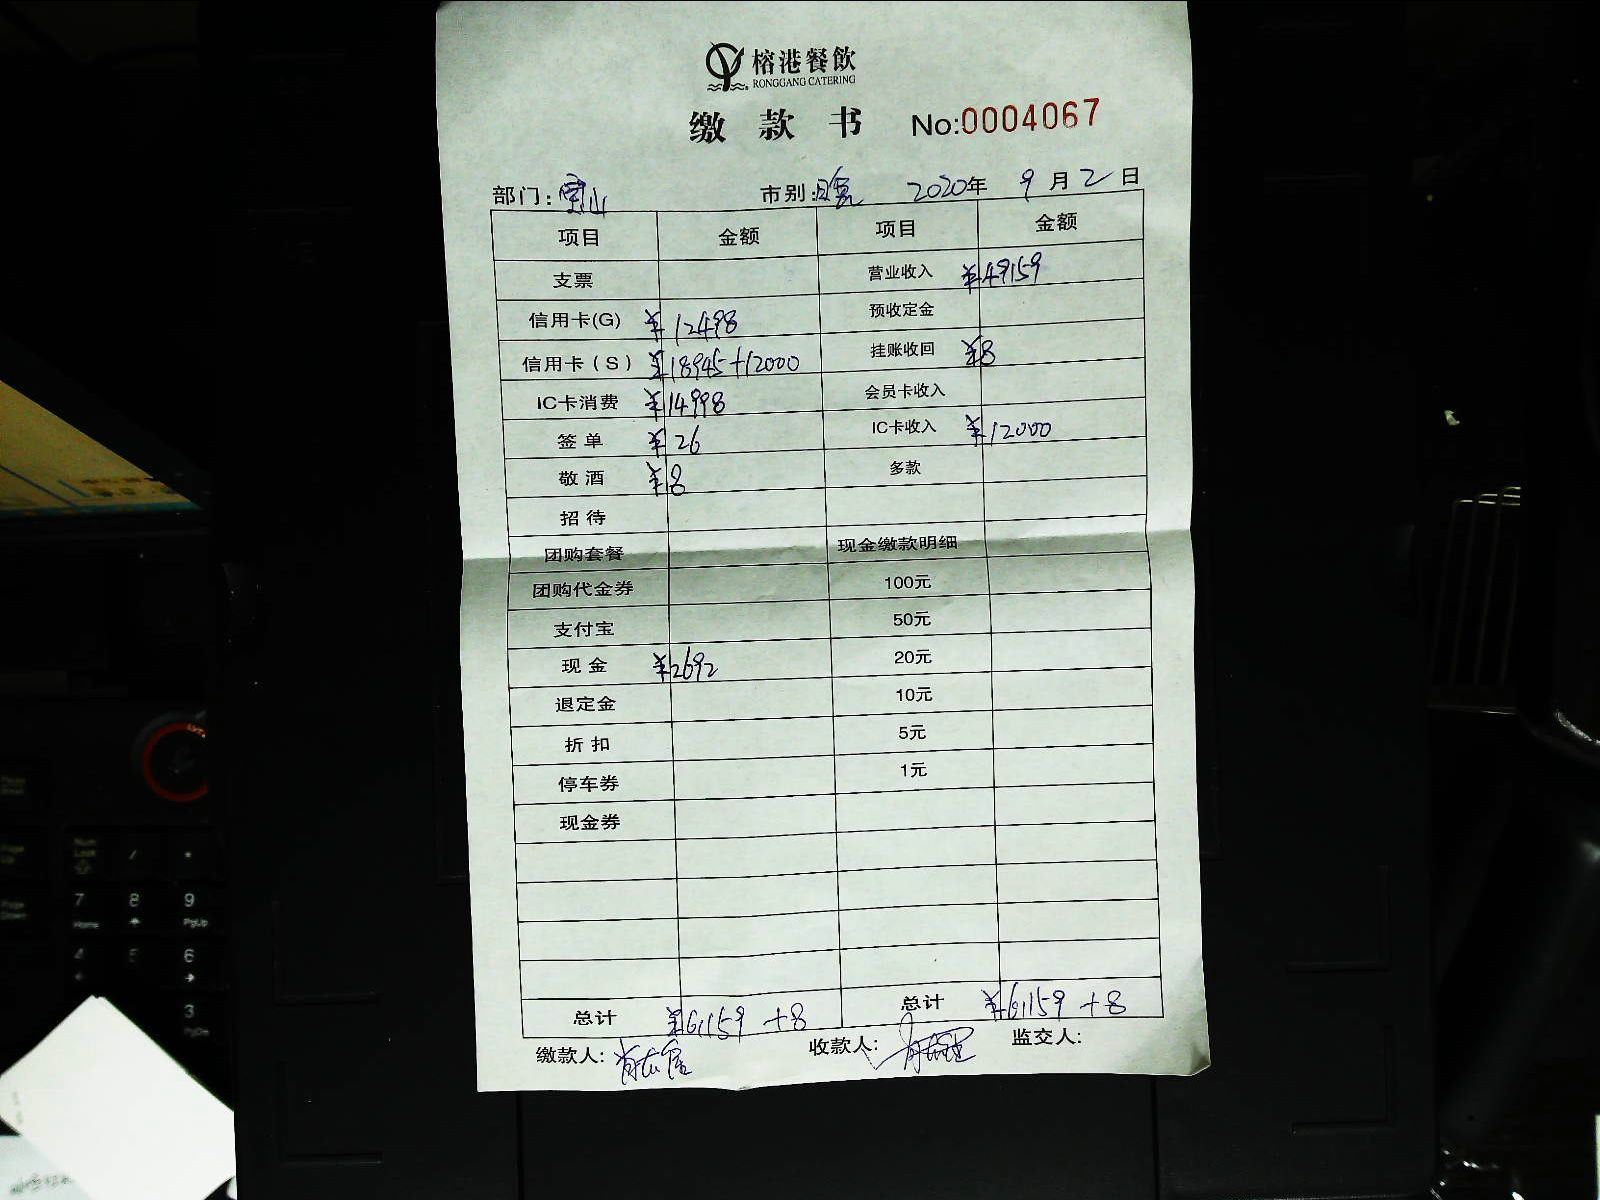 榕港餐飲
RONGGANG CATERING
缴款书 No:0004067
部门: 宝山 市别: 2020年 9月2日
项目 金额 项目 金额
支票 营业收入 ¥49159
信用卡(G) ¥12498 预收定金
信用卡(S) ¥18945+12000 挂账收回 ¥8
IC卡消费 ¥14998 会员卡收入
签单 ¥26 IC卡收入 ¥12000
敬酒 ¥8 多款
招待
团购套餐 现金缴款明细
团购代金券 100元
支付宝 50元
现金 ¥2692 20元
退定金 10元
折扣 5元
停车券 1元
现金券
总计 ¥61159 +8 总计 ¥61159 +8
缴款人: 收款人: 监交人:
7 8 9
Home PgUp
4 5 6
3
PgDn